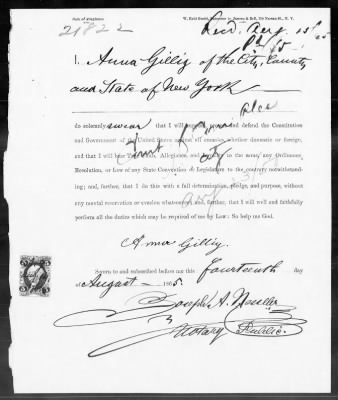 Oath of Allegiance
21822
Recd. Aug. 15th 65
I, Anna Gillig of the City, County
and State of New York
do solemnly swear that I will support and defend the Constitution
and Government of the United States against all enemies, whether domestic or foreign;
and that I will bear true Faith, Allegiance, and Loyalty to the same, any Ordinance,
Resolution, or Law of any State Convention or Legislature to the contrary notwithstand-
ing; and, further, that I do this with a full determination, pledge, and purpose, without
any mental reservation or evasion whatsoever; and, further, that I will well and faithfully
perform all the duties which may be required of me by Law: So help me God.
Anna Gillig.
Sworn to and subscribed before me this Fourteenth day
of August 1865.
Joseph A.
Notary Public.